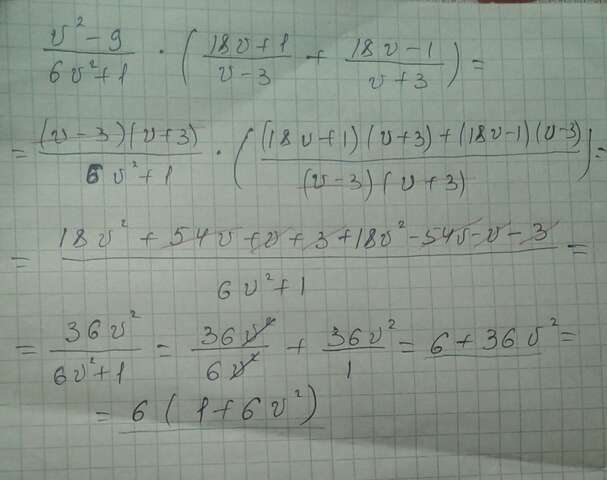 (v² - 9)/(6v² + 1) · ((18v + 1)/(v - 3) + (18v - 1)/(v + 3)) =
= ((v - 3)(v + 3))/(6v² + 1) · (((18v + 1)(v + 3) + (18v - 1)(v - 3))/((v - 3)(v + 3))) =
= (18v² + 54v + v + 3 + 18v² - 54v - v - 3)/(6v² + 1) =
= 36v²/(6v² + 1) = 36v²/6v² + 36v²/1 = 6 + 36v² =
= 6(1 + 6v²)